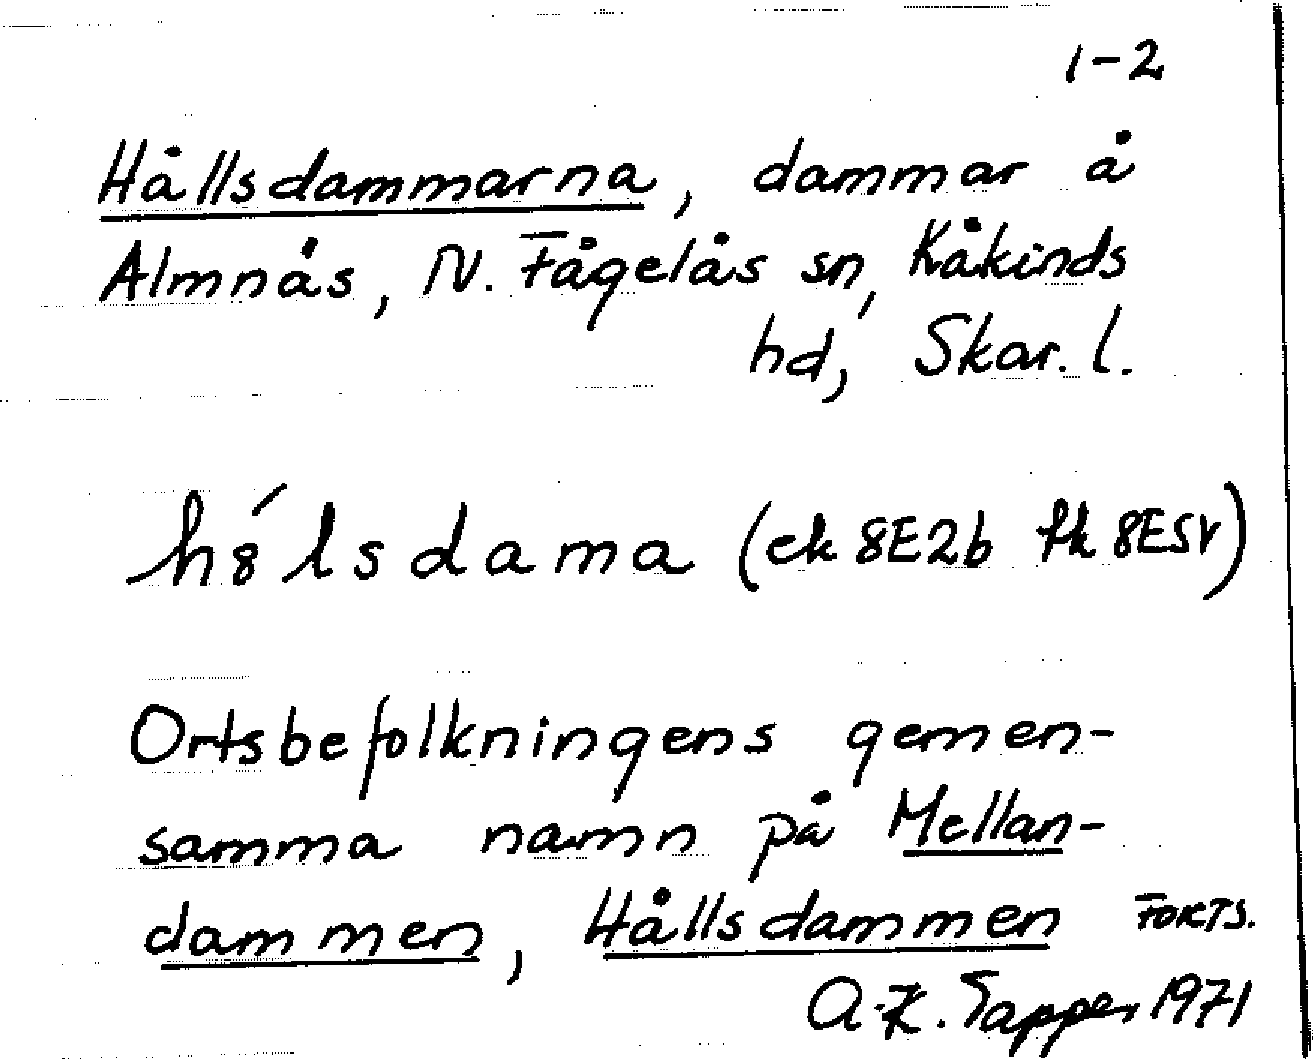 1-2
Hållsdammarna, dammar å
Almnäs, N. Fågelås sn, Kåkinds
hd, Skar. l.
h8́lsdama (ek 8E2b fk 8E5v)
Ortsbefolkningens gemen-
samma namn på Mellan-
dammen, Hållsdammen FORTS.
A-K. Tapper 1971